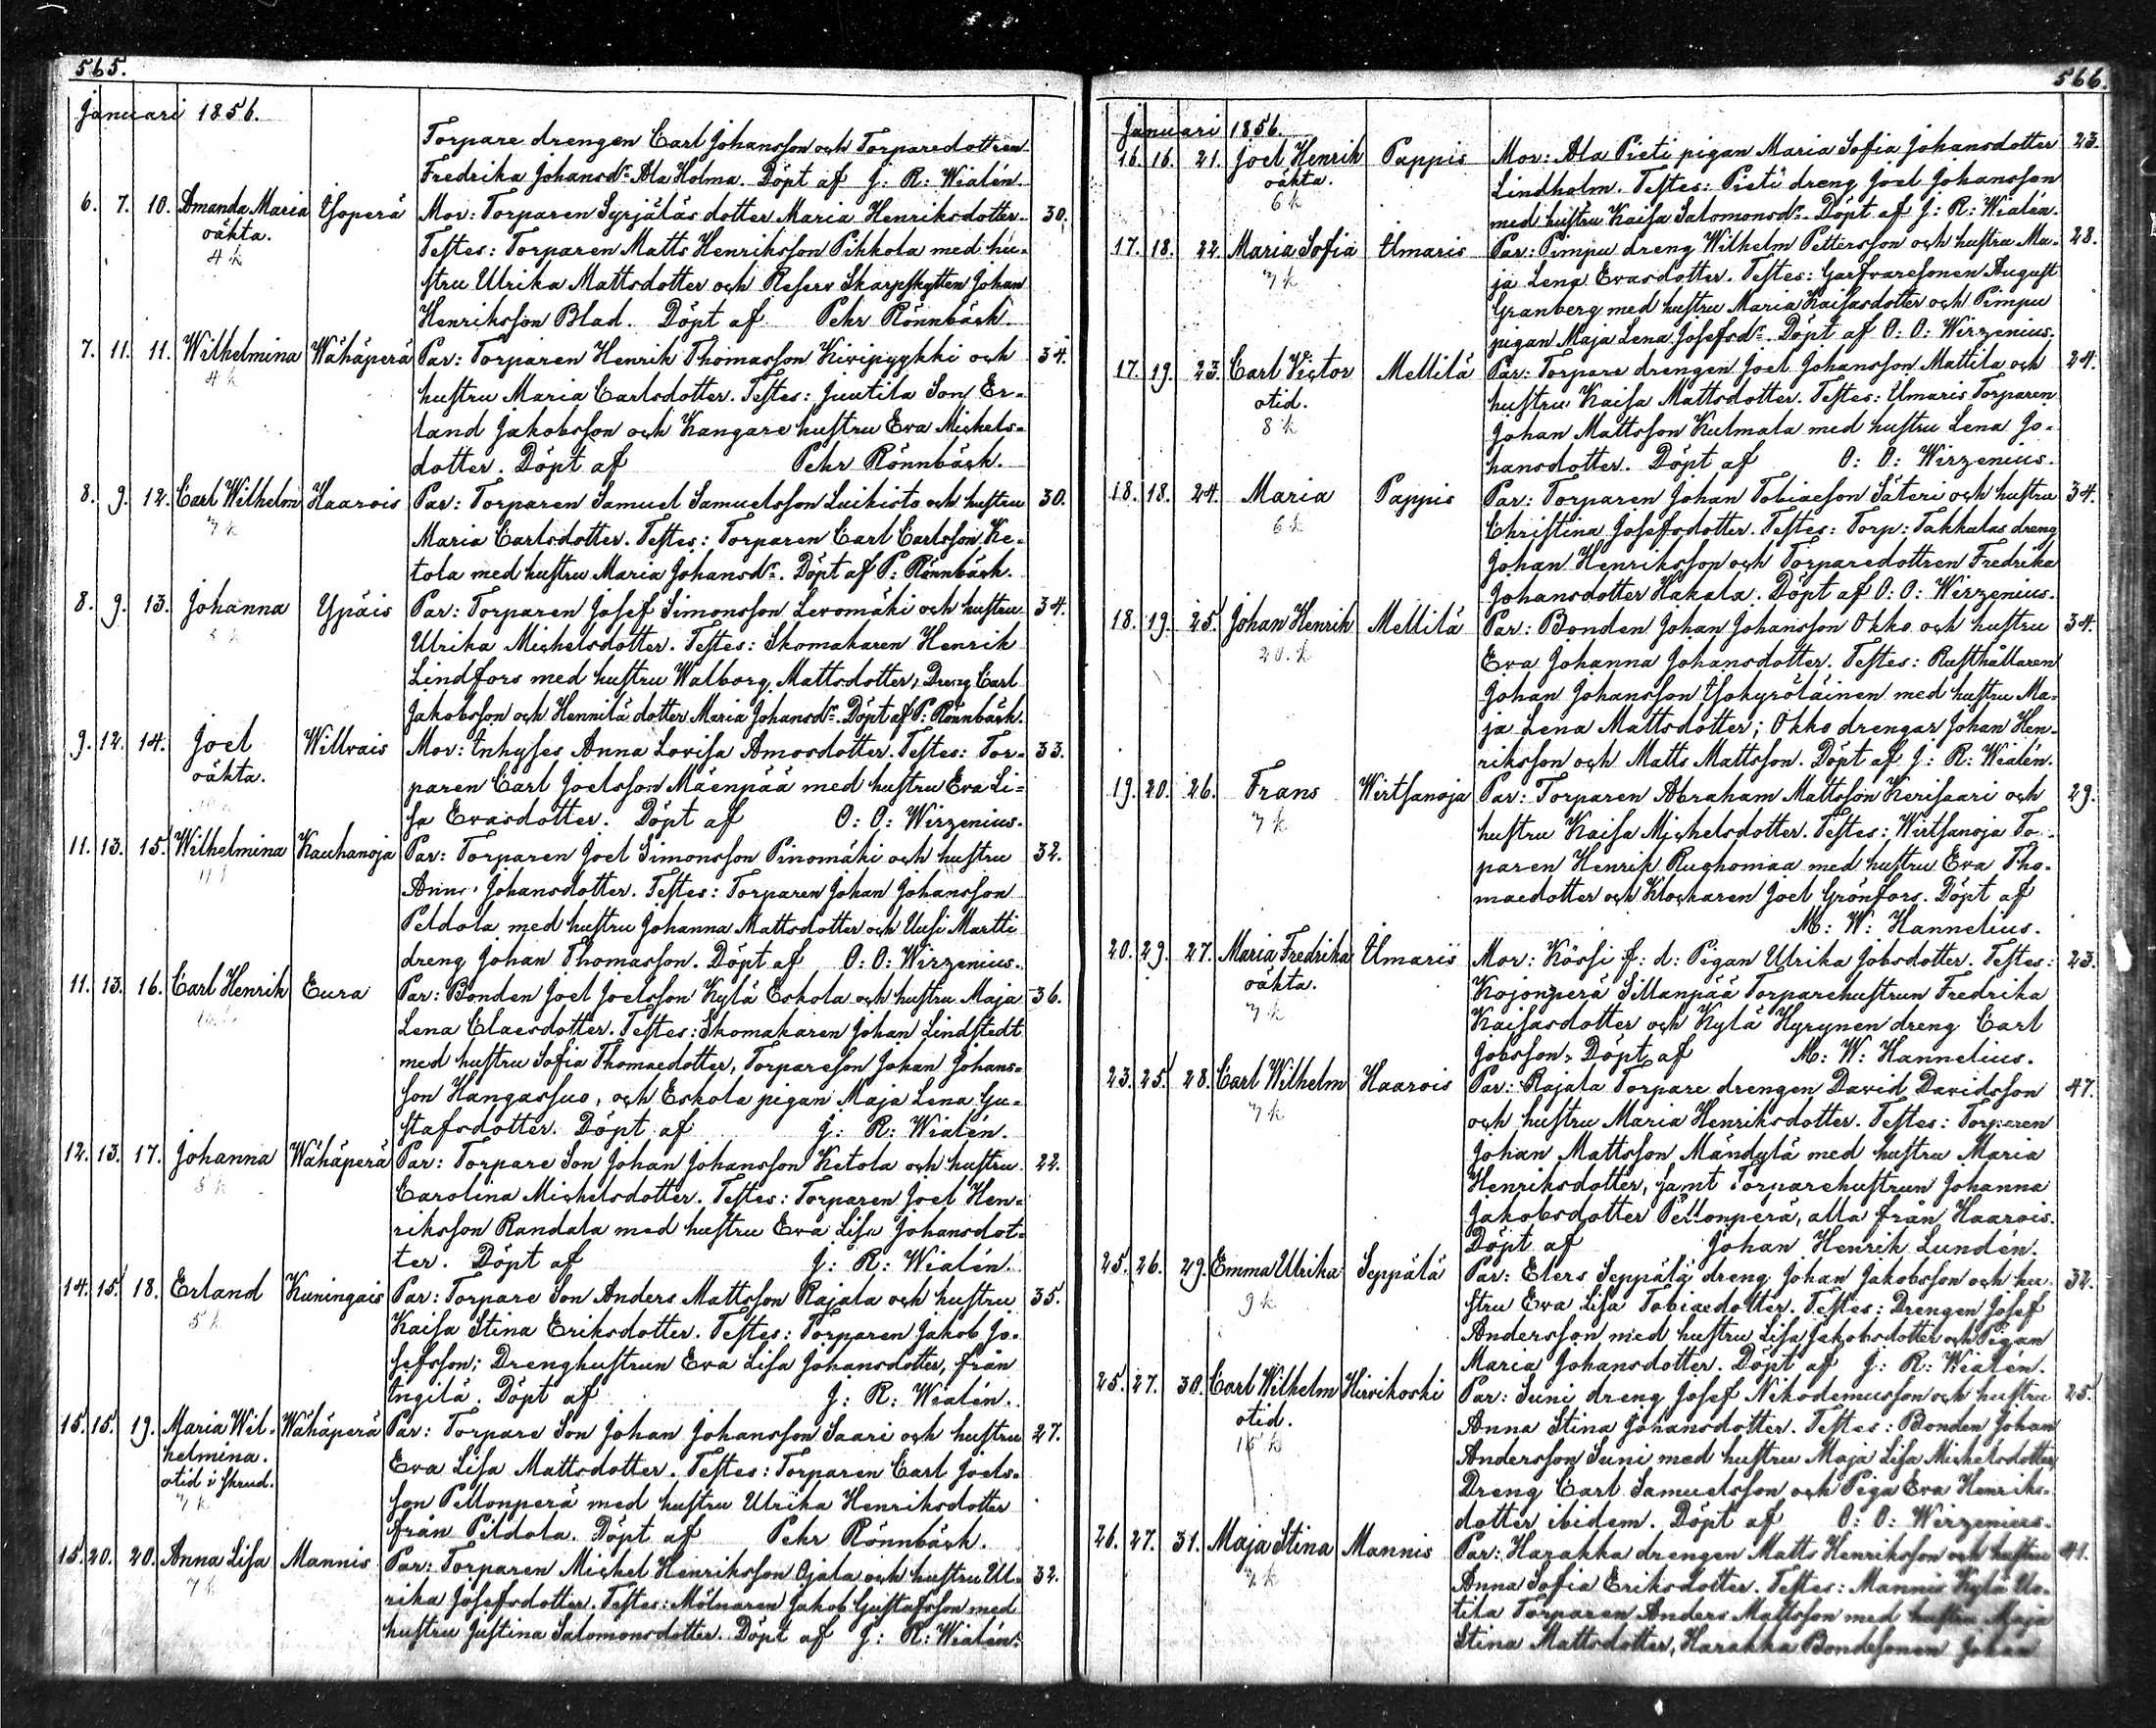 565.
Januari 1856.
Torpare drengen Carl Johansson och Torparedottren
Fredrika Johansdr Ala Holma. Döpt af J: R: Wialén.
6. 7. 10. Amanda Maria Isoperä Mor: Torparen Syrjäläs dotter Maria Henriksdotter. 30.
oäkta.
4 k
Testes: Torparen Matts Henriksson Pihkola med hu-
stru Ulrika Mattsdotter och Reserv Skarpskytten Johan
Henriksson Blad. Döpt af Pehr Rönnbäck.
7. 11. 11. Wilhelmina Wähäperä Par: Torparen Henrik Thomasson Kivipyykki och 34.
4 k
hustru Maria Carlsdotter. Testes: Juutila Son Er-
land Jakobsson och Kangare hustru Eva Michels-
dotter. Döpt af Pehr Rönnbäck.
8. 9. 12. Carl Wilhelm Haarois Par: Torparen Samuel Samuelsson Luikisto och hustru 30.
7 k
Maria Carlsdotter. Testes: Torparen Carl Carlsson Ke-
tola med hustru Maria Johansdr. Döpt af P: Rönnbäck.
8. 9. 13. Johanna Ypäis Par: Torparen Josef Simonsson Levomäki och hustru 34.
Ulrika Michelsdotter. Testes: Skomakaren Henrik
Lindfors med hustru Walborg Mattsdotter, Dreng Carl
Jakobsson och Hennilä dotter Maria Johansdr. Döpt af P: Rönnbäck.
9. 12. 14. Joel Willvais Mor: Inhyses Anna Lovisa Amosdotter. Testes: Tor- 33.
oäkta.
paren Carl Joelsson Mäenpää med hustru Eva Li-
sa Evasdotter. Döpt af O: O: Wirzenius.
11. 13. 15. Wilhelmina Kauhanoja Par: Torparen Joel Simonsson Pinomäki och hustru 32.
Anna Johansdotter. Testes: Torparen Johan Johansson
Peldola med hustru Johanna Mattsdotter och Uusi Martti
dreng Johan Thomasson. Döpt af O: O: Wirzenius.
11. 13. 16. Carl Henrik Eura Par: Bonden Joel Joelsson Kylä Eskola och hustru Maja 36.
Lena Claesdotter. Testes: Skomakaren Johan Lindstedt
med hustru Sofia Thomaedotter, Torpareson Johan Johans-
son Hangassuo, och Eskola pigan Maja Lena Gu-
stafsdotter. Döpt af J: R: Wialén.
12. 13. 17. Johanna Wähäperä Par: Torpare Son Johan Johansson Ketola och hustru 22.
Carolina Michelsdotter. Testes: Torparen Joel Hen-
riksson Randala med hustru Eva Lisa Johansdot-
ter. Döpt af J: R: Wialén.
14. 15. 18. Erland Kuningais Par: Torpare Son Anders Mattsson Rajala och hustru 35.
5 k
Kaisa Stina Eriksdotter. Testes: Torparen Jakob Jo-
sefsson; Drenghustrun Eva Lisa Johansdotter, från
Ingilä. Döpt af J: R: Wialén.
15. 15. 19. Maria Wil- Wähäperä Par: Torpare Son Johan Johansson Saari och hustru 27.
helmina.
otid i skrud.
7 k
Eva Lisa Mattsdotter. Testes: Torparen Carl Joels-
son Pellonperä med hustru Ulrika Henriksdotter
från Pildola. Döpt af Pehr Rönnbäck.
15. 20. 20. Anna Lisa Mannis Par: Torparen Michel Henriksson Ojala och hustru Ul- 32.
7 k
rika Josefsdotter. Testes: Mölnaren Jakob Gustafsson med
hustru Justina Salomonsdotter. Döpt af J: R: Wialén.
566.
Januari 1856.
16. 16. 21. Joel Henrik Pappis Mor: Ala Pieti pigan Maria Sofia Johansdotter 23.
oäkta.
6 k
Lindholm. Testes: Pieti dreng Joel Johansson
med hustru Kaisa Salomonsdr. Döpt af J: R: Wialén.
17. 18. 22. Maria Sofia Ilmaris Par: Pimpu dreng Wilhelm Pettersson och hustru Ma- 28.
7 k
ja Lena Evasdotter. Testes: Garfvaresonen August
Granberg med hustru Maria Kaisasdotter och Pimpu
pigan Maja Lena Josefsdr. Döpt af O: O: Wirzenius.
17. 19. 23. Carl Victor Mellilä Par: Torpare drengen Joel Johansson Mattila och 24.
otid.
8 k
hustru Kaisa Mattsdotter. Testes: Ilmaris Torparen
Johan Mattsson Kulmala med hustru Lena Jo-
hansdotter. Döpt af O: O: Wirzenius.
18. 18. 24. Maria Pappis Par: Torparen Johan Tobiaesson Säteri och hustru 34.
6 k
Christina Josefsdotter. Testes: Torp: Takkulas dreng
Johan Henriksson och Torparedottren Fredrika
Johansdotter Hakala. Döpt af O: O: Wirzenius.
18. 19. 25. Johan Henrik Mellilä Par: Bonden Johan Johansson Okko och hustru 34.
20. k
Eva Johanna Johansdotter. Testes: Rusthållaren
Johan Johansson Isokyröläinen med hustru Ma-
ja Lena Mattsdotter; Okko drengar Johan Hen-
riksson och Matts Mattsson. Döpt af J: R: Wialén.
19. 20. 26. Frans Wirtsanoja Par: Torparen Abraham Mattsson Kerisaari och 29.
7 k
hustru Kaisa Michelsdotter. Testes: Wirtsanoja To-
paren Henrik Rughomaa med hustru Eva Tho-
maedotter och Klockaren Joel Grönfors. Döpt af
M: W: Hannelius.
20. 29. 27. Maria Fredrika Ilmaris Mor: Kössi f: d: Pigan Ulrika Jobsdotter. Testes: 23.
oäkta.
7 k
Kojonperä Sillanpää Torparehustrun Fredrika
Kaisasdotter och Kylä Hyrynen dreng Carl
Jobsson. Döpt af M: W: Hannelius.
23. 25. 28. Carl Wilhelm Haarois Par: Rajala Torpare drengen David Davidsson 47.
7 k
och hustru Maria Henriksdotter. Testes: Torparen
Johan Mattsson Mändylä med hustru Maria
Henriksdotter, samt Torparehustrun Johanna
Jakobsdotter Pellonperä, alla från Haarois.
Döpt af Johan Henrik Lundén.
25. 26. 29. Emma Ulrika Seppälä Par: Elers Seppälä dreng Johan Jakobsson och hu- 32.
9 k
stru Eva Lisa Tobiaedotter. Testes: Drengen Josef
Andersson med hustru Lisa Jakobsdotter och Pigan
Maria Johansdotter. Döpt af J: R: Wialén.
25. 27. 30. Carl Wilhelm Hirvikoski Par: Suni dreng Josef Nikodemusson och hustru 25.
otid.
Anna Stina Johansdotter. Testes: Bonden Johan
Andersson Suni med hustru Maja Lisa Michelsdotter,
Dreng Carl Samuelsson och Piga Eva Henriks-
dotter ibidem. Döpt af O: O: Wirzenius.
26. 27. 31. Maja Stina Mannis Par: Harakka drengen Matts Henriksson och hustru 41.
7 k
Anna Sofia Eriksdotter. Testes: Mannis Kylä Uo-
tila Torparen Anders Mattsson med hustru Maja
Stina Mattsdotter, Harakka Bondesonen Johan